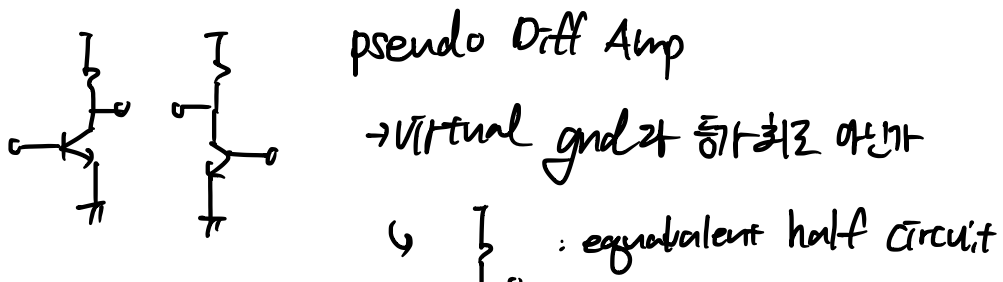 pseudo Diff Amp
→ Virtual gnd라 등가회로 아닌가
↳ : equabalent half circuit